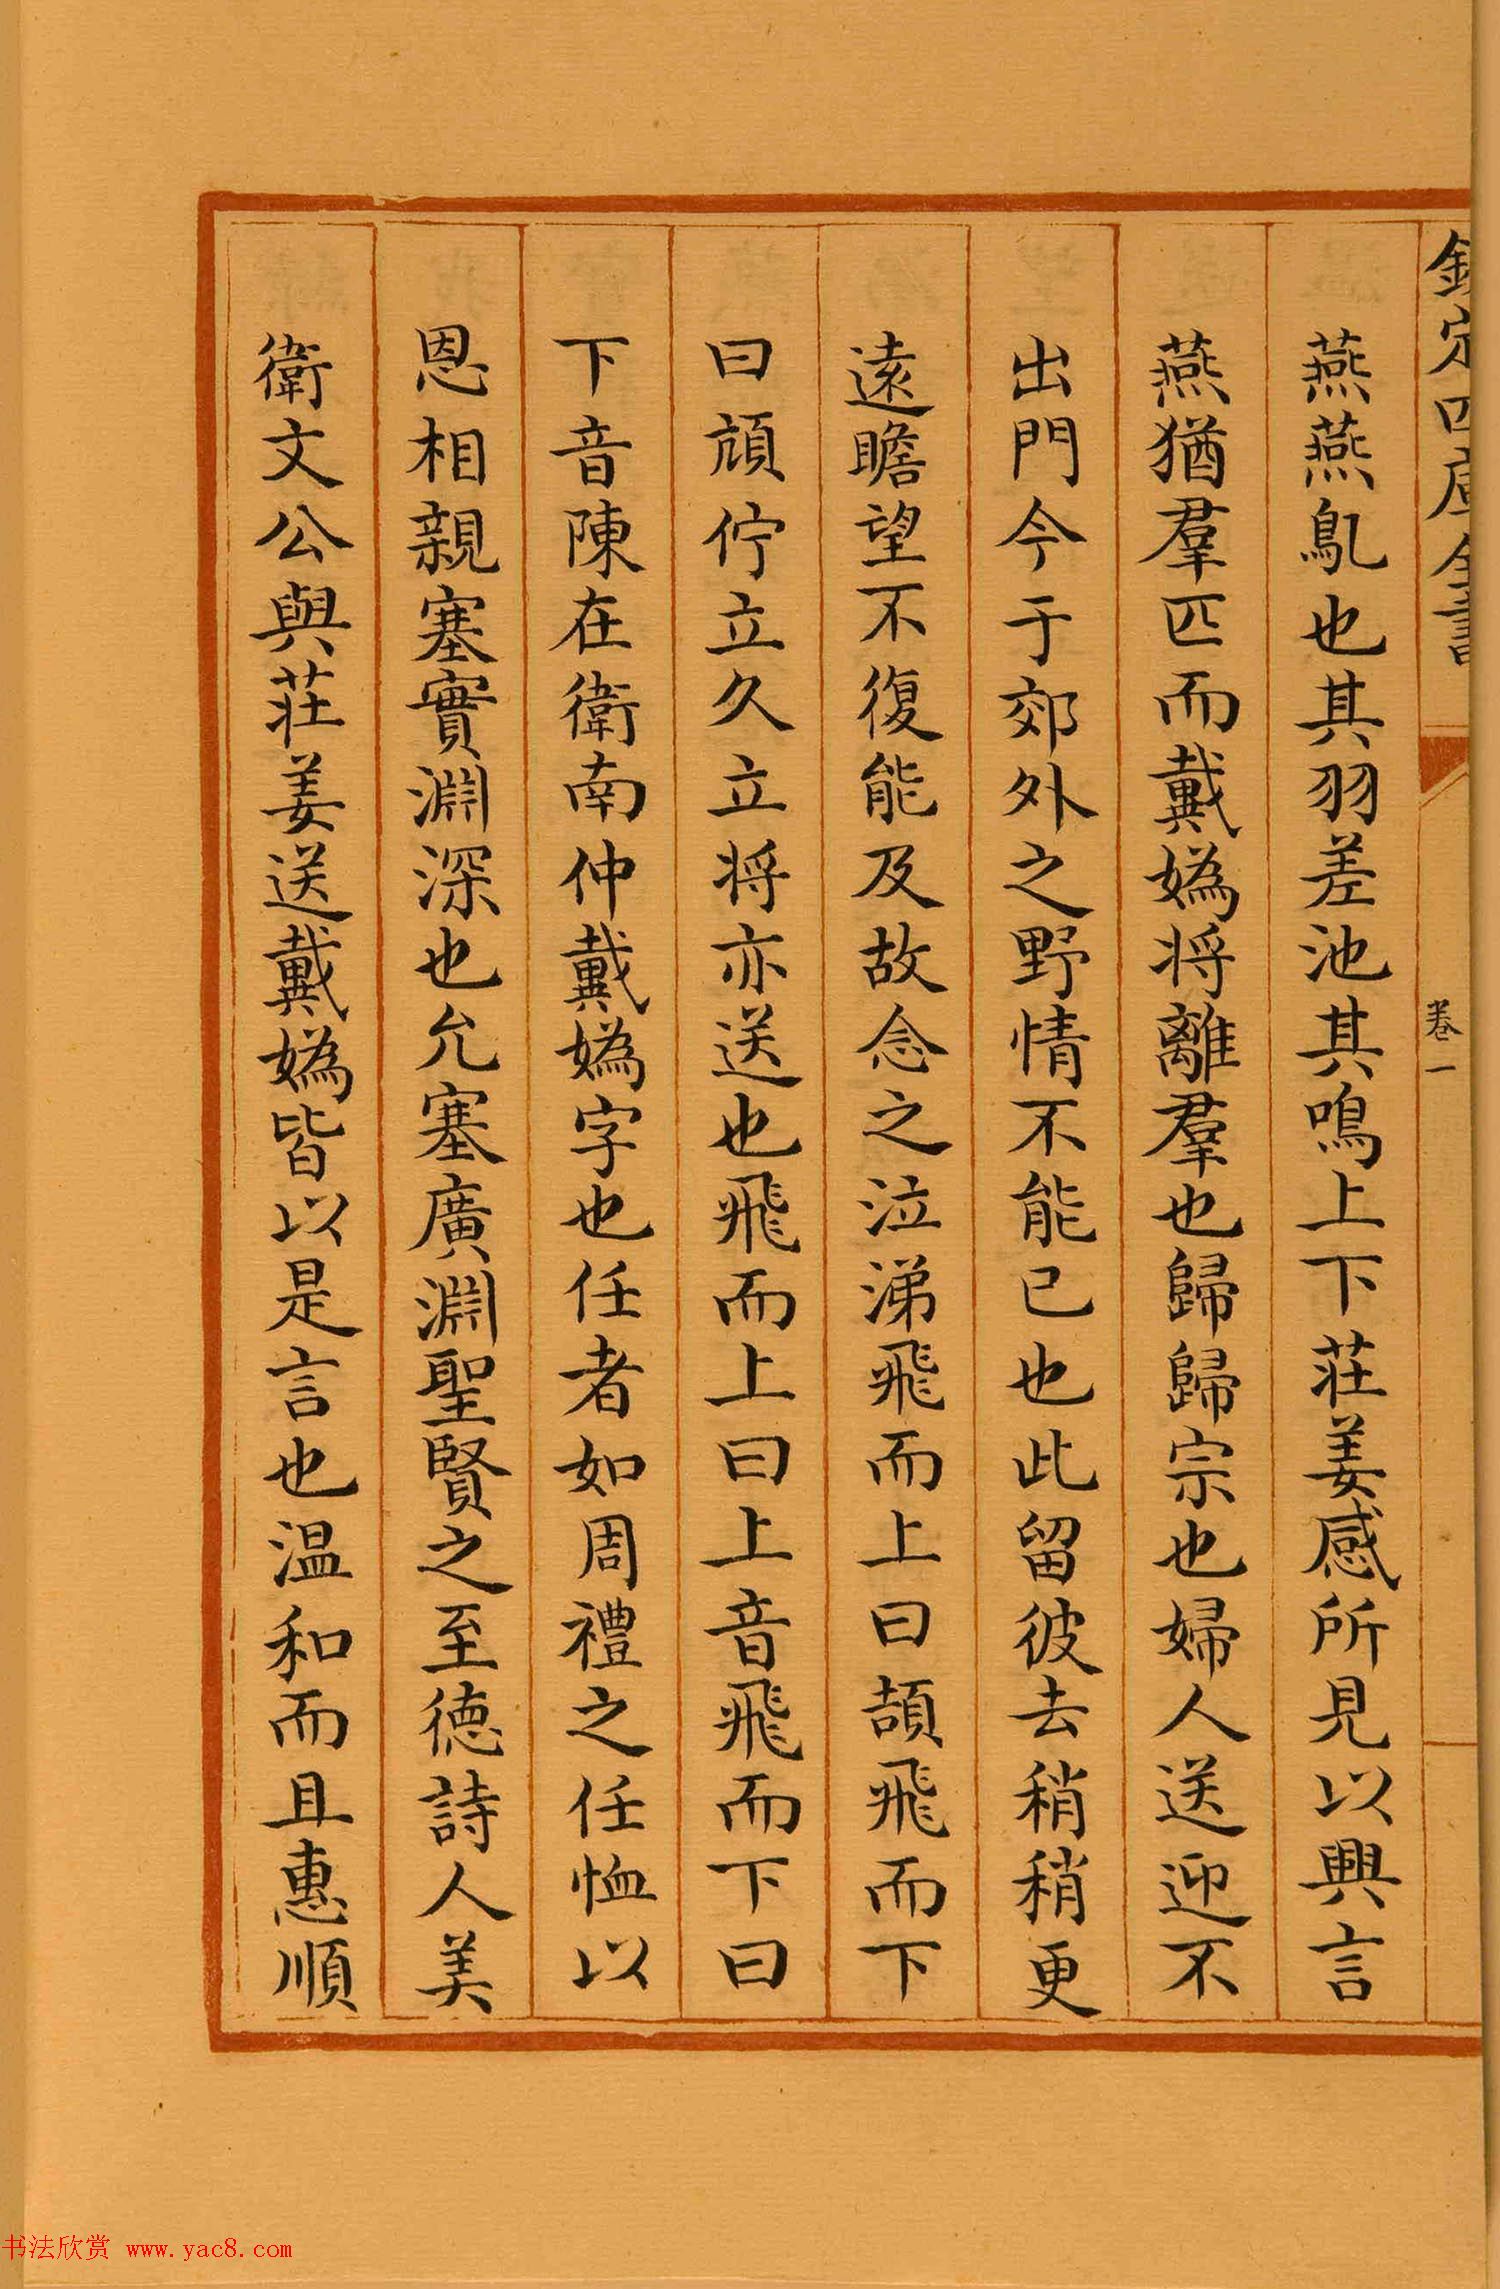 欽定四庫全書
卷一
燕燕鳦也其羽差池其鳴上下莊姜感所見以興言
燕猶羣匹而戴媯将離羣也歸歸宗也婦人送迎不
出門今于郊外之野情不能已也此留彼去稍稍更
逺瞻望不復能及故念之泣涕飛而上曰頡飛而下
曰頏佇立久立将亦送也飛而上曰上音飛而下曰
下音陳在衛南仲戴媯字也任者如周禮之任恤以
恩相親塞實淵深也允塞廣淵聖賢之至徳詩人美
衛文公與莊姜送戴媯皆以是言也温和而且惠順
书法欣赏 www.yac8.com